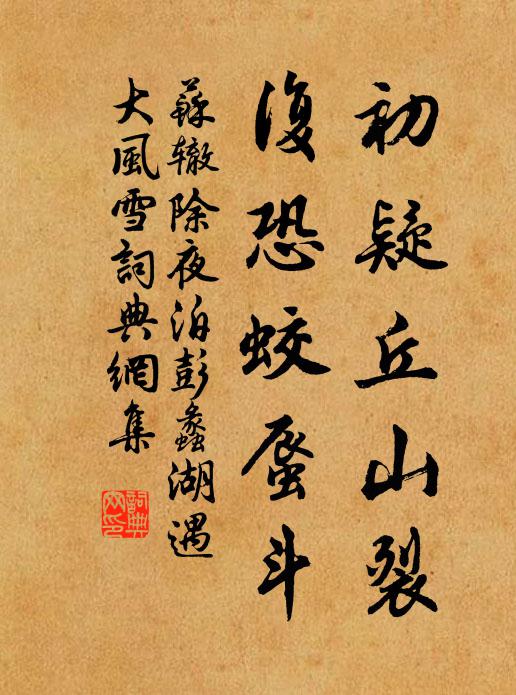 初疑丘山裂
復恐蛟蜃斗
蘇辙除夜泊彭蠡湖遇
大風雪詞典網集
詞典
网印